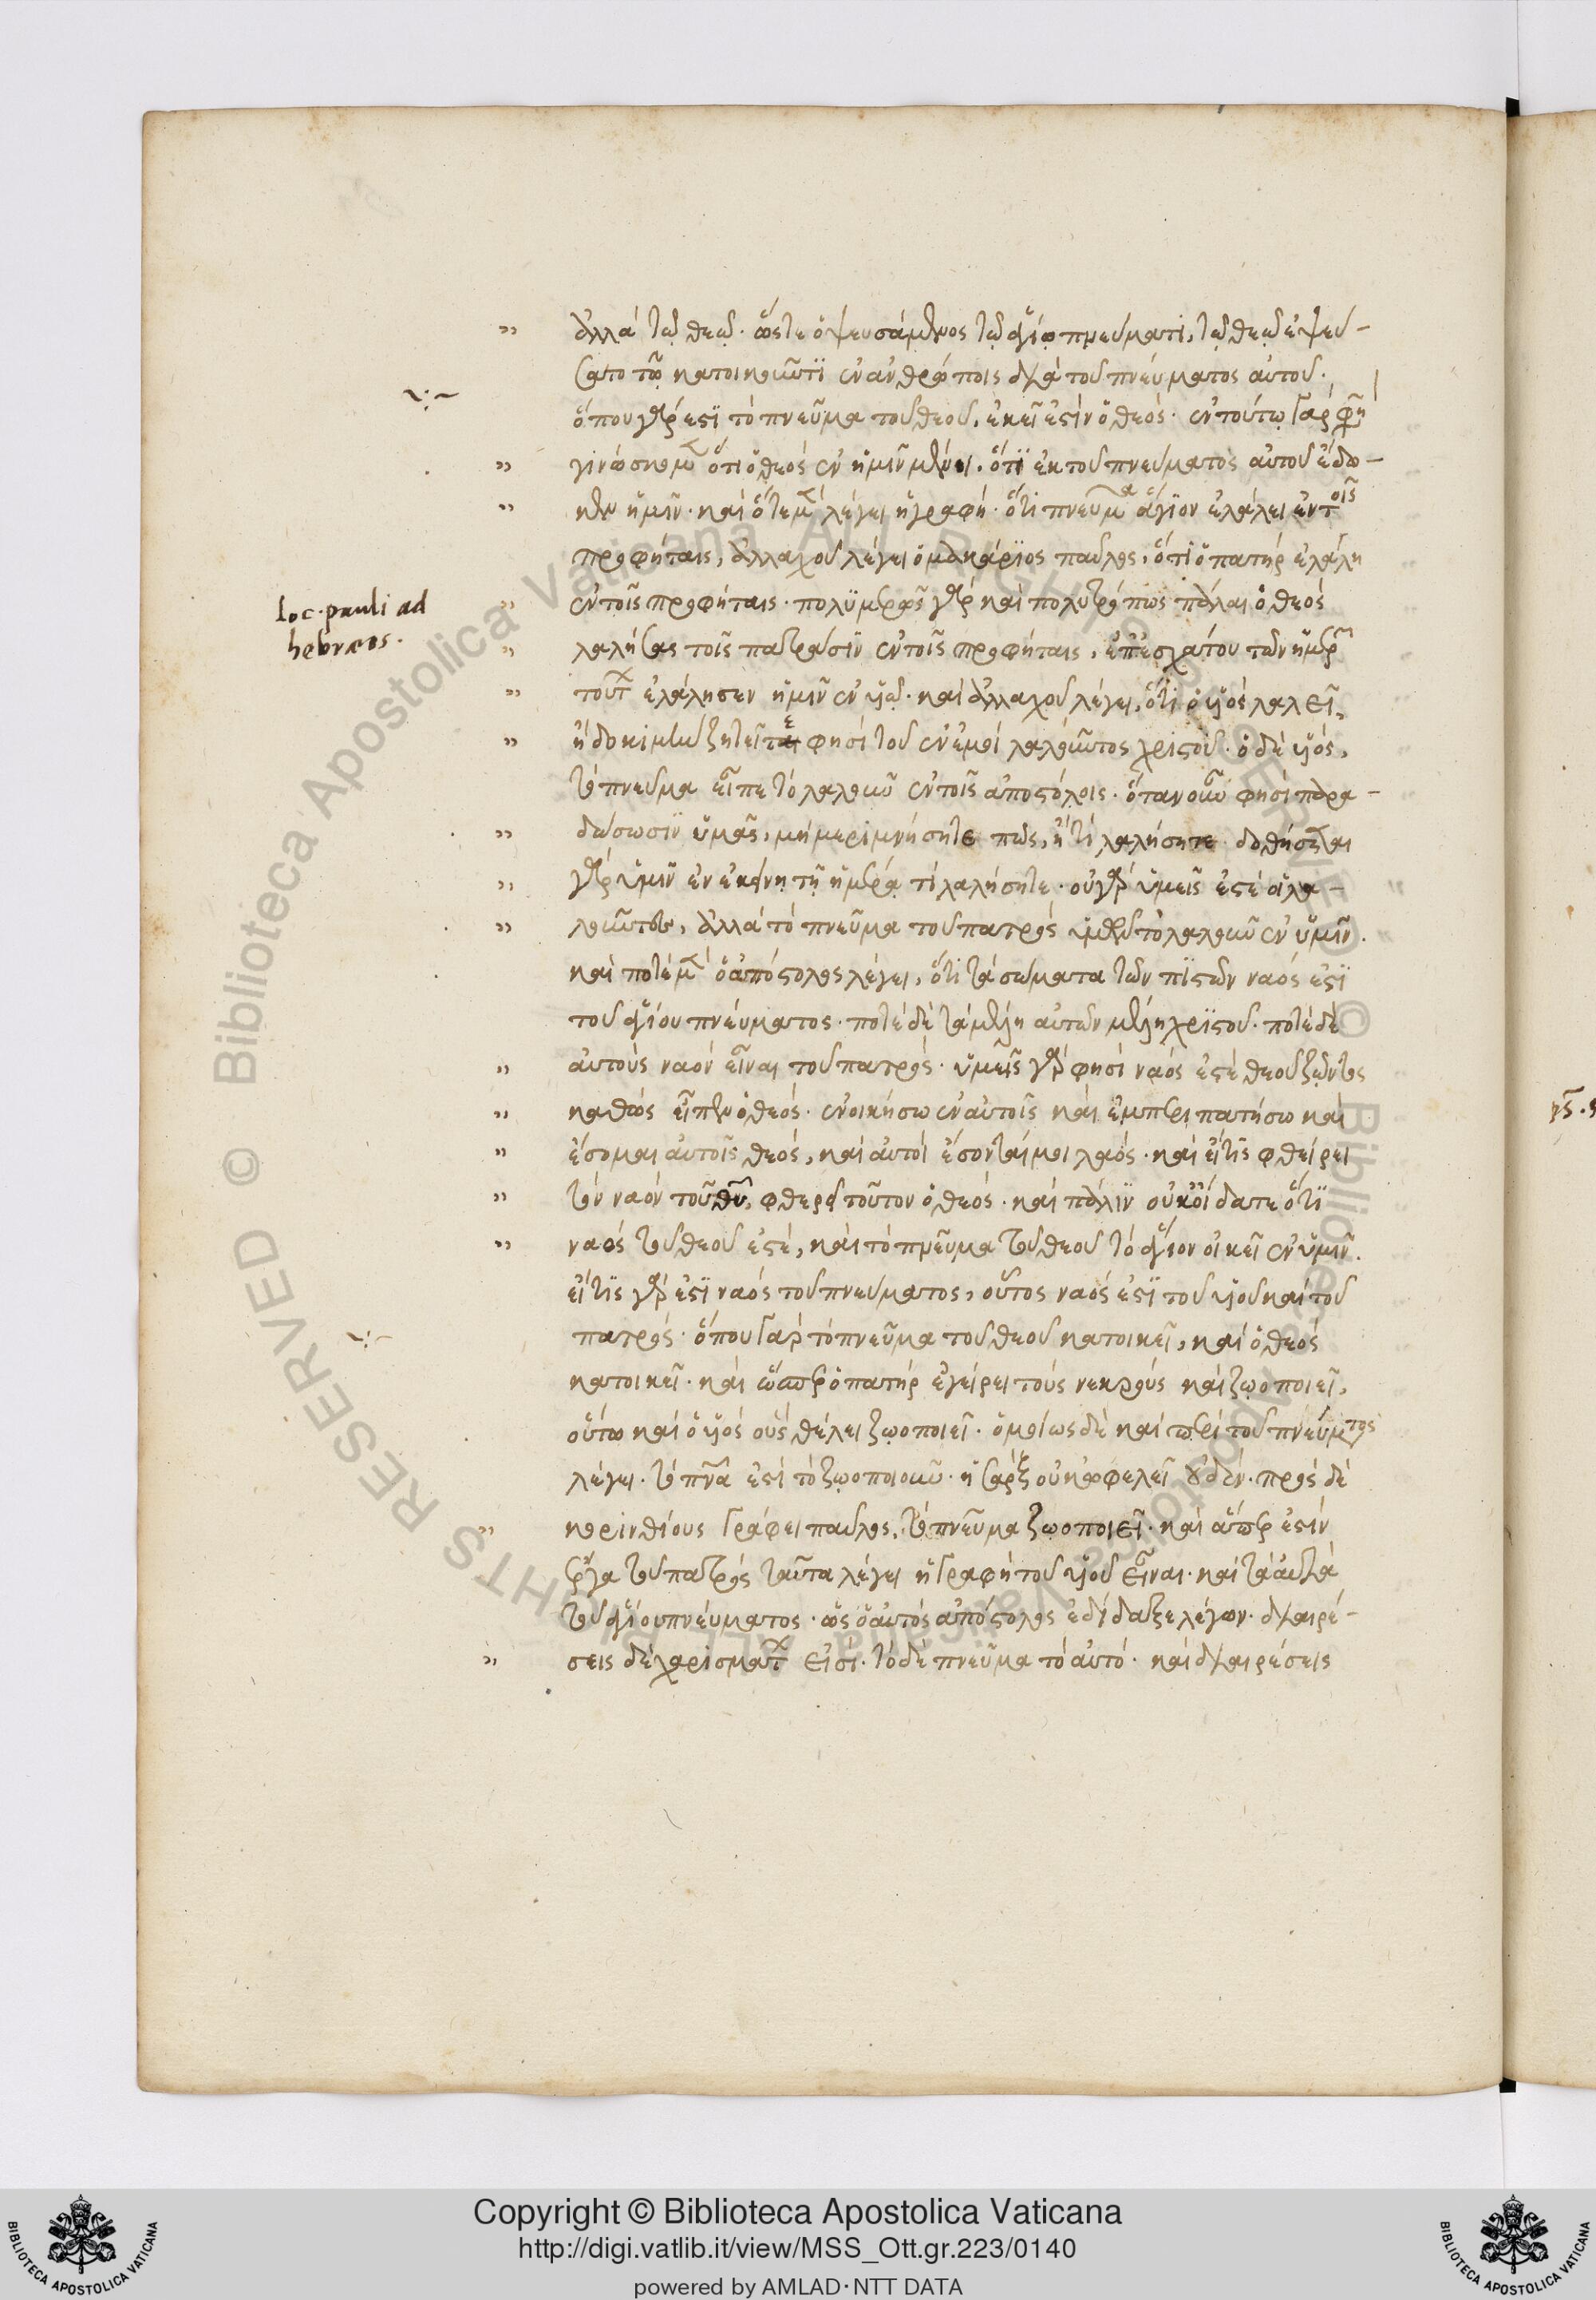 ἀλλὰ τῷ θεῷ. ὥστε ὁ ψευσάμενος τῷ ἁγίῳ πνεύματι, τῷ θεῷ ἐψεύ-
σατο τῷ κατοικοῦντι ἐν ἀνθρώποις διὰ τοῦ πνεύματος αὐτοῦ.
ὅπου γάρ ἐστι τὸ πνεῦμα τοῦ θεοῦ, ἐκεῖ ἐστὶν ὁ θεός. ἐν τούτῳ γάρ φησι
γινώσκομεν ὅτι ὁ θεὸς ἐν ἡμῖν μένει, ὅτι ἐκ τοῦ πνεύματος αὐτοῦ ἔδω-
κεν ἡμῖν. καὶ ὅτε μὲν λέγει ἡ γραφή. ὅτι πνεῦμα ἅγιον ἐλάλει ἐν τοῖς
προφήταις, ἀλλαχοῦ λέγει ὁ μακάριος παῦλος, ὅτι ὁ πατὴρ ἐλάλη
loc. pauli ad
hebræos.
ἐν τοῖς προφήταις. πολυμερῶς γὰρ καὶ πολυτρόπως πάλαι ὁ θεὸς
λαλήσας τοῖς πατράσιν ἐν τοῖς προφήταις, ἐπ' ἐσχάτου τῶν ἡμερῶν
τούτων ἐλάλησεν ἡμῖν ἐν υἱῷ. καὶ ἀλλαχοῦ λέγει, ὅτι ὁ υἱὸς λαλεῖ,
ἢ δοκιμὴν ζητεῖτε φησὶ τοῦ ἐν ἐμοὶ λαλοῦντος χριστοῦ. ὁ δὲ υἱός,
τὸ πνεῦμα εἶπε τὸ λαλοῦν ἐν τοῖς ἀποστόλοις. ὅταν οὖν φησὶ παρα-
δώσωσιν ὑμᾶς, μὴ μεριμνήσητε πῶς, ἢ τί λαλήσητε. δοθήσεται
γὰρ ὑμῖν ἐν ἐκείνῃ τῇ ἡμέρᾳ τί λαλήσητε. οὐ γὰρ ὑμεῖς ἐστὲ οἱ λα-
λοῦντες, ἀλλὰ τὸ πνεῦμα τοῦ πατρὸς ὑμῶν τὸ λαλοῦν ἐν ὑμῖν.
καὶ ποτὲ μὲν ὁ ἀπόστολος λέγει, ὅτι τὰ σώματα τῶν πιστῶν ναός ἐστι
τοῦ ἁγίου πνεύματος. ποτὲ δὲ τὰ μέλη αὐτῶν μέλη χριστοῦ. ποτὲ δὲ
αὐτοὺς ναὸν εἶναι τοῦ πατρός. ὑμεῖς γάρ φησὶ ναός ἐστὲ θεοῦ ζῶντος
καθὼς εἶπεν ὁ θεός. ἐνοικήσω ἐν αὐτοῖς καὶ ἐμπεριπατήσω καὶ
ἔσομαι αὐτοῖς θεός, καὶ αὐτοὶ ἔσονταί μοι λαός. καὶ εἴ τις φθείρει
τὸν ναὸν τοῦ θυ, φθερεῖ τοῦτον ὁ θεός. καὶ πάλιν οὐκ οἴδατε ὅτι
ναὸς τοῦ θεοῦ ἐστέ, καὶ τὸ πνεῦμα τοῦ θεοῦ τὸ ἅγιον οἰκεῖ ἐν ὑμῖν.
εἴ τις γάρ ἐστι ναὸς τοῦ πνεύματος, οὗτος ναός ἐστι τοῦ υἱοῦ καὶ τοῦ
πατρός. ὅπου γὰρ τὸ πνεῦμα τοῦ θεοῦ κατοικεῖ, καὶ ὁ θεὸς
κατοικεῖ. καὶ ὥσπερ ὁ πατὴρ ἐγείρει τοὺς νεκροὺς καὶ ζῳοποιεῖ,
οὕτω καὶ ὁ υἱὸς οὓς θέλει ζῳοποιεῖ. ὁμοίως δὲ καὶ περὶ τοῦ πνεύματος
λέγει. τὸ πνα ἐστὶ τὸ ζῳοποιοῦν. ἡ σὰρξ οὐκ ὠφελεῖ οὐδέν. πρὸς δὲ
κορινθίους γράφει παῦλος, τὸ πνεῦμα ζωοποιεῖ. καὶ ἅπερ ἐστὶν
ἔργα τοῦ πατρὸς ταῦτα λέγει ἡ γραφὴ τοῦ υἱοῦ εἶναι. καὶ τὰ αὐτὰ
τοῦ ἁγίου πνεύματος. ὡς ὁ αὐτὸς ἀπόστολος ἐδίδαξε λέγων. διαιρέ-
σεις δὲ χαρισμάτων εἰσί. τὸ δὲ πνεῦμα τὸ αὐτό. καὶ διαιρέσεις
Copyright © Biblioteca Apostolica Vaticana
http://digi.vatlib.it/view/MSS_Ott.gr.223/0140
powered by AMLAD·NTT DATA